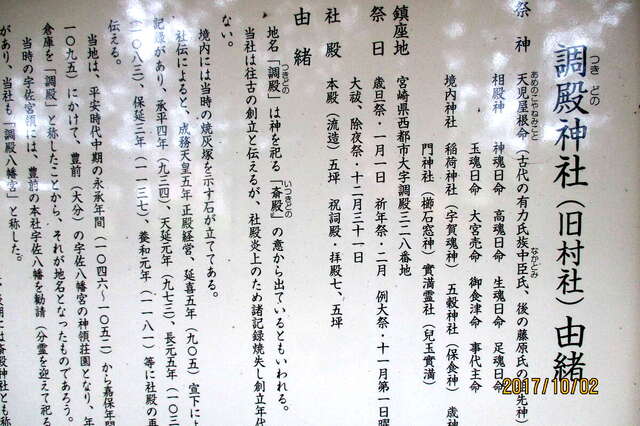 つき どの
調殿神社（旧村社）由緒
祭神 天児屋根命（古代の有力氏族中臣氏、後の藤原氏の祖先神）
あめのこやねみこと
なかとみ
相殿神 神魂日命 高魂日命 生魂日命 足魂日命
玉魂日命 大宮売命 御食津命 事代主命
境内神社 稲荷神社（宇賀魂神） 五穀神社（保食神） 歳神
門神社（櫛石窓神）實満霊社（兒玉實満）
鎮座地 宮崎県西都市大字調殿三二八番地
祭日 歳旦祭・一月一日 祈年祭・二月 例大祭・十一月第一日曜
大祓、除夜祭・十二月三十一日
社殿 本殿（流造）五坪 祝詞殿・拝殿七、五坪
由緒
地名「調殿」は神を祀る「斎殿」の意から出ているともいわれる。
つきどの
いつきどの
当社は往古の創立と伝えるが、社殿炎上のため諸記録焼失し創立年代
ない。
境内には当時の焼灰塚を示す石が立ててある。
社伝によると、成務天皇五年正殿経営、延喜五年（九〇五）宣下によ
記録があり、承平四年（九三四）、天延元年（九七三）、長元五年（一〇三
（一〇八三）、保延三年（一一三七）、養和元年（一一八一）等に社殿の再
伝える。
当地は、平安時代中期の永承年間（一〇四六～一〇五二）から嘉保年間
一〇九五）にかけて、豊前（大分）の宇佐八幡宮の神領荘園となり、年
倉庫を「調殿」と称したことから、それが地名となったものであろう。
当時の宇佐宮領には、豊前の本社宇佐八幡を勧請（分霊を迎えて祀る
があり、当社も「調殿八幡宮」と称した。
期には斎殿神社とも称
2017/10/02